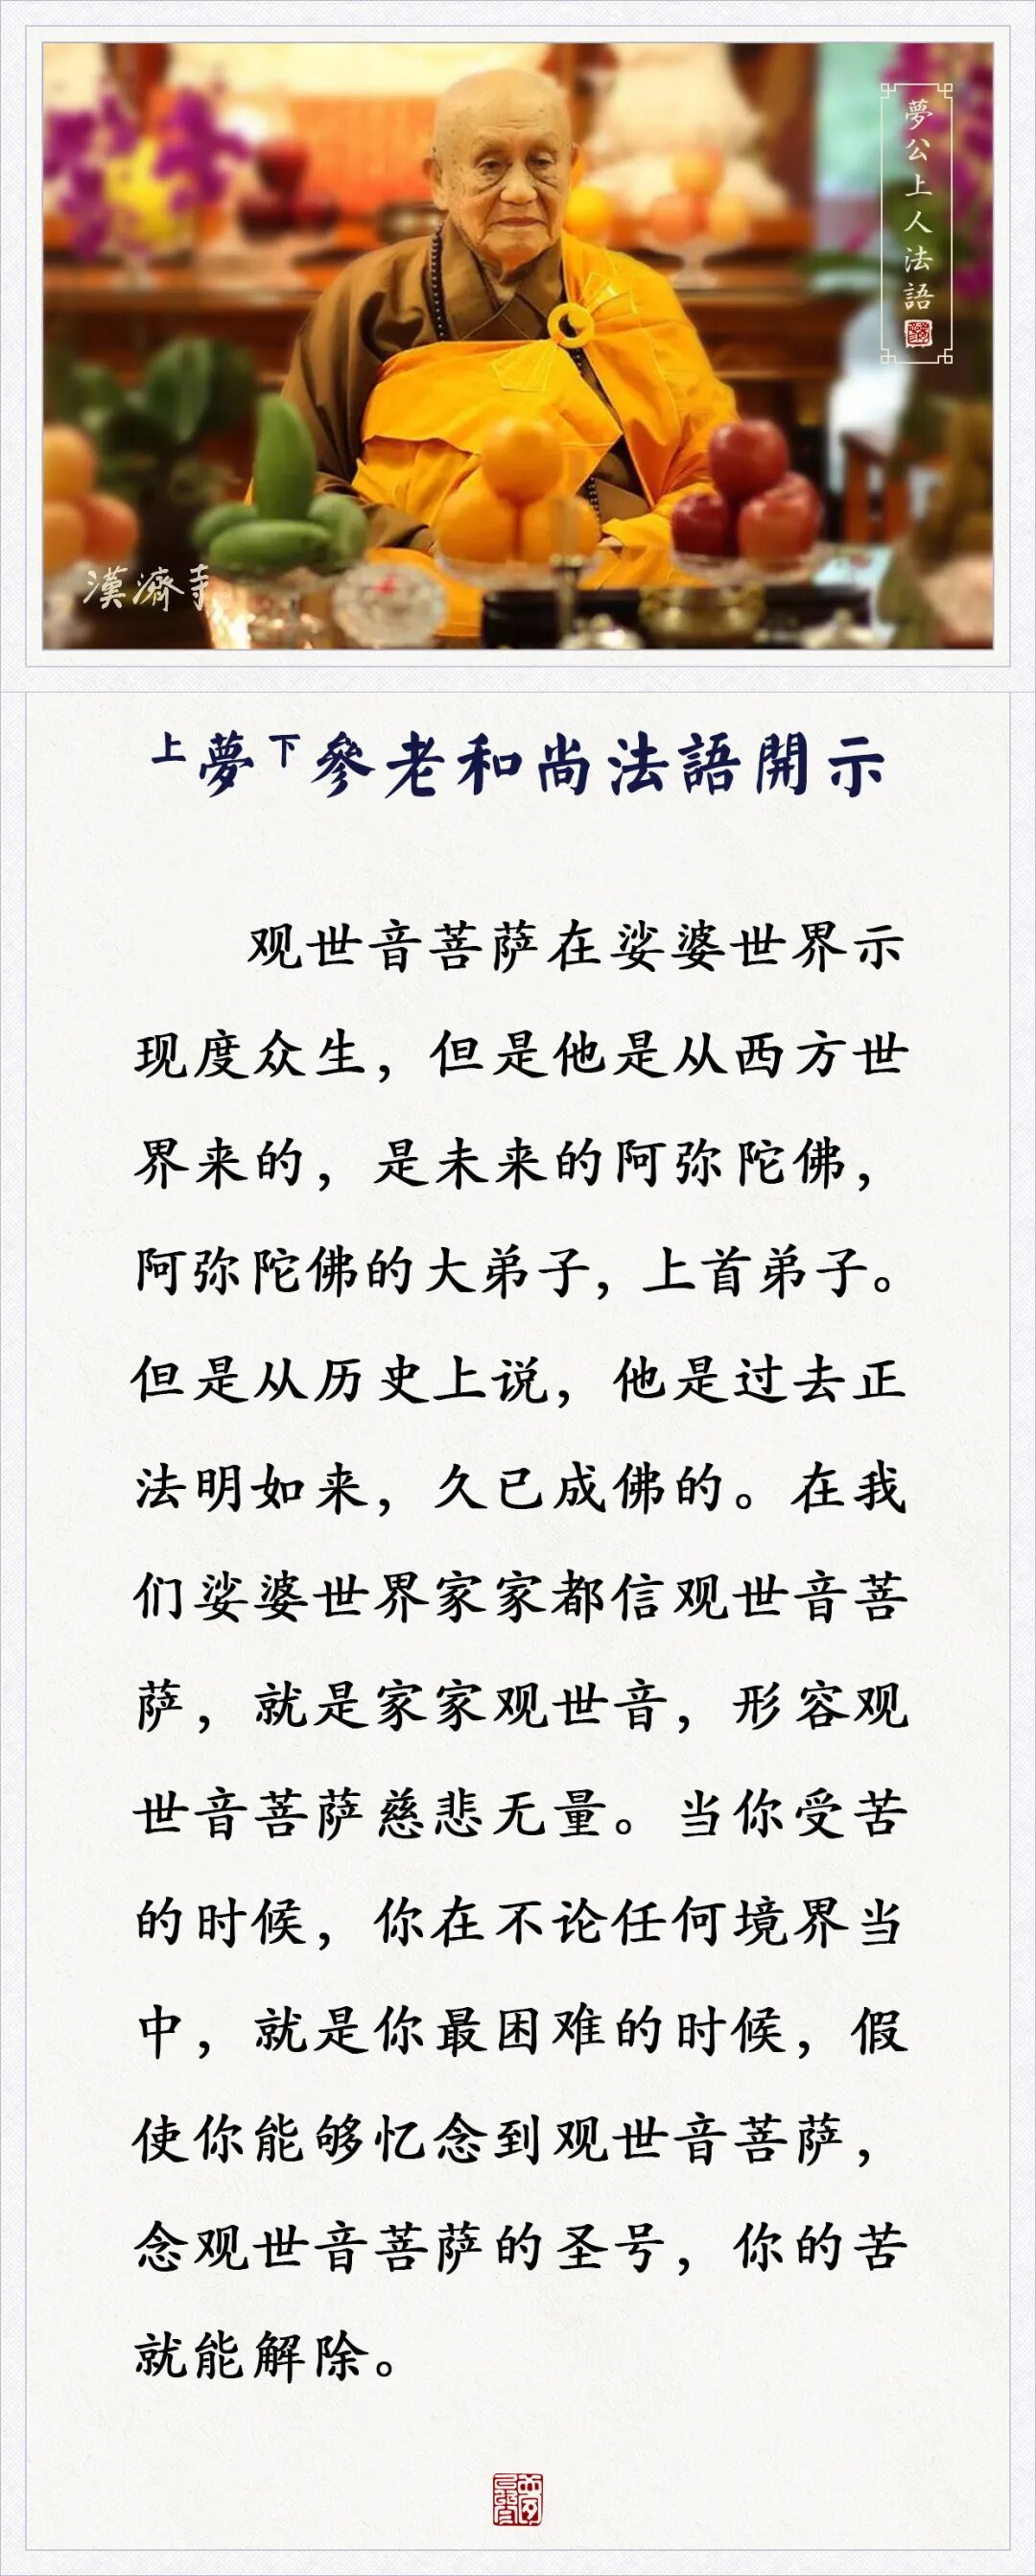 夢公上人法語
漢濟寺
上夢下參老和尚法語開示
观世音菩萨在娑婆世界示
现度众生，但是他是从西方世
界来的，是未来的阿弥陀佛，
阿弥陀佛的大弟子，上首弟子。
但是从历史上说，他是过去正
法明如来，久已成佛的。在我
们娑婆世界家家都信观世音菩
萨，就是家家观世音，形容观
世音菩萨慈悲无量。当你受苦
的时候，你在不论任何境界当
中，就是你最困难的时候，假
使你能够忆念到观世音菩萨，
念观世音菩萨的圣号，你的苦
就能解除。